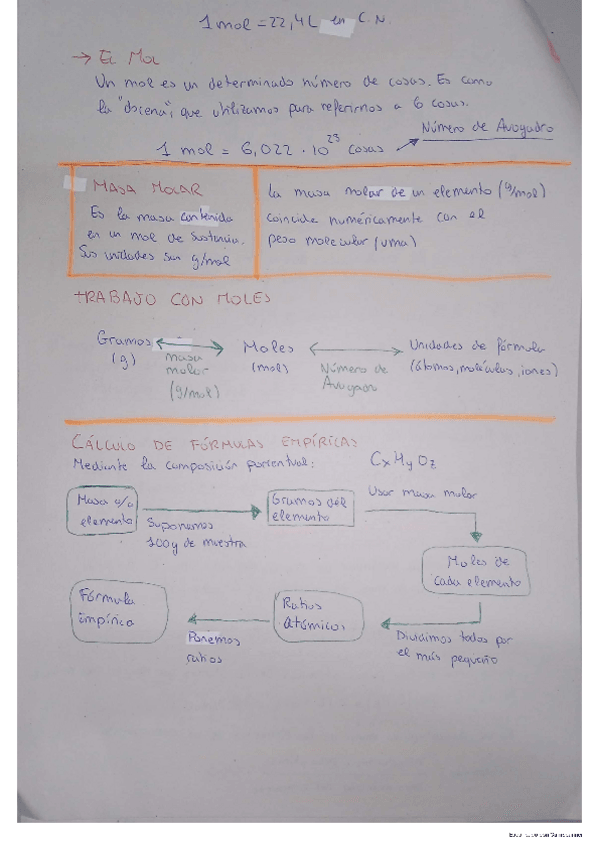 1 mol = 22,4 L en C.N.
→ El Mol
Un mol es un determinado número de cosas. Es como
la "docena", que utilizamos para referirnos a 6 cosas.
1 mol = 6,022 · 10^23 cosas
Número de Avogadro
MASA MOLAR
Es la masa contenida
en un mol de sustancia.
Sus unidades son g/mol
La masa molar de un elemento (g/mol)
coincide numéricamente con el
peso molecular (uma)
TRABAJO CON MOLES
Gramos
(g)
masa
molar
(g/mol)
Moles
(mol)
Número de
Avogadro
Unidades de fórmula
(átomos, moléculas, iones)
CÁLCULO DE FÓRMULAS EMPÍRICAS
Mediante la composición porcentual:
CxHyOz
Masa %
elemento
Suponemos
100g de muestra
Gramos del
elemento
Usar masa molar
Moles de
cada elemento
Dividimos todos por
el más pequeño
Ratios
atómicos
Ponemos
ratios
Fórmula
empírica